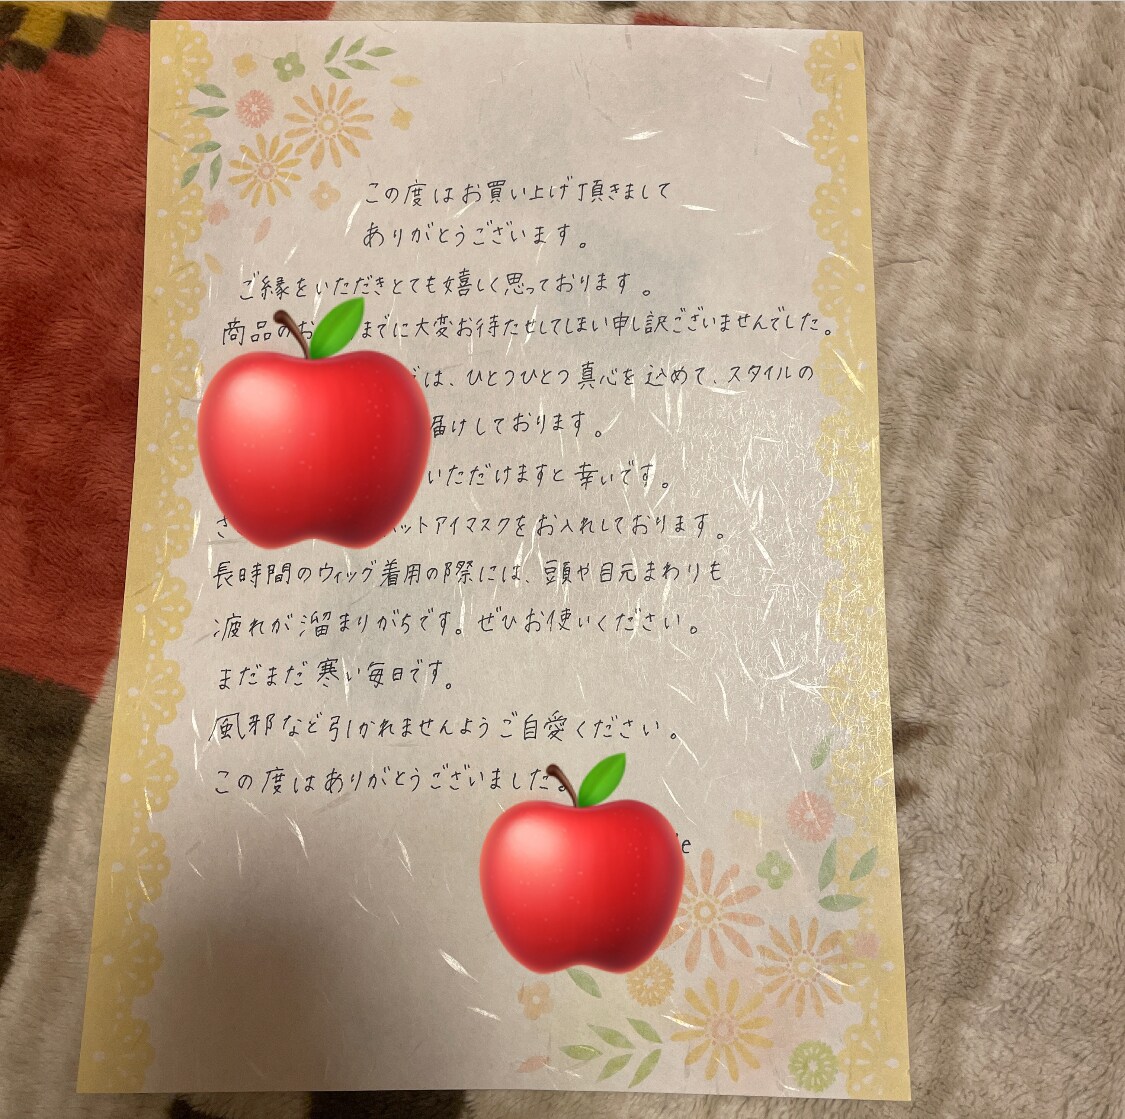 この度はお買い上げ頂きまして
ありがとうございます。
ご縁をいただきとても嬉しく思っております。
商品のお までに大変お待たせしてしまい申し訳ございませんでした。
は、ひとつひとつ真心を込めて、スタイルの
届けしております。
いただけますと幸いです。
さ ホットアイマスクをお入れしております。
長時間のウィッグ着用の際には、頭や目元まわりも
疲れが溜まりがちです。ぜひお使いください。
まだまだ寒い毎日です。
風邪など引かれませんようご自愛ください。
この度はありがとうございました。
ie